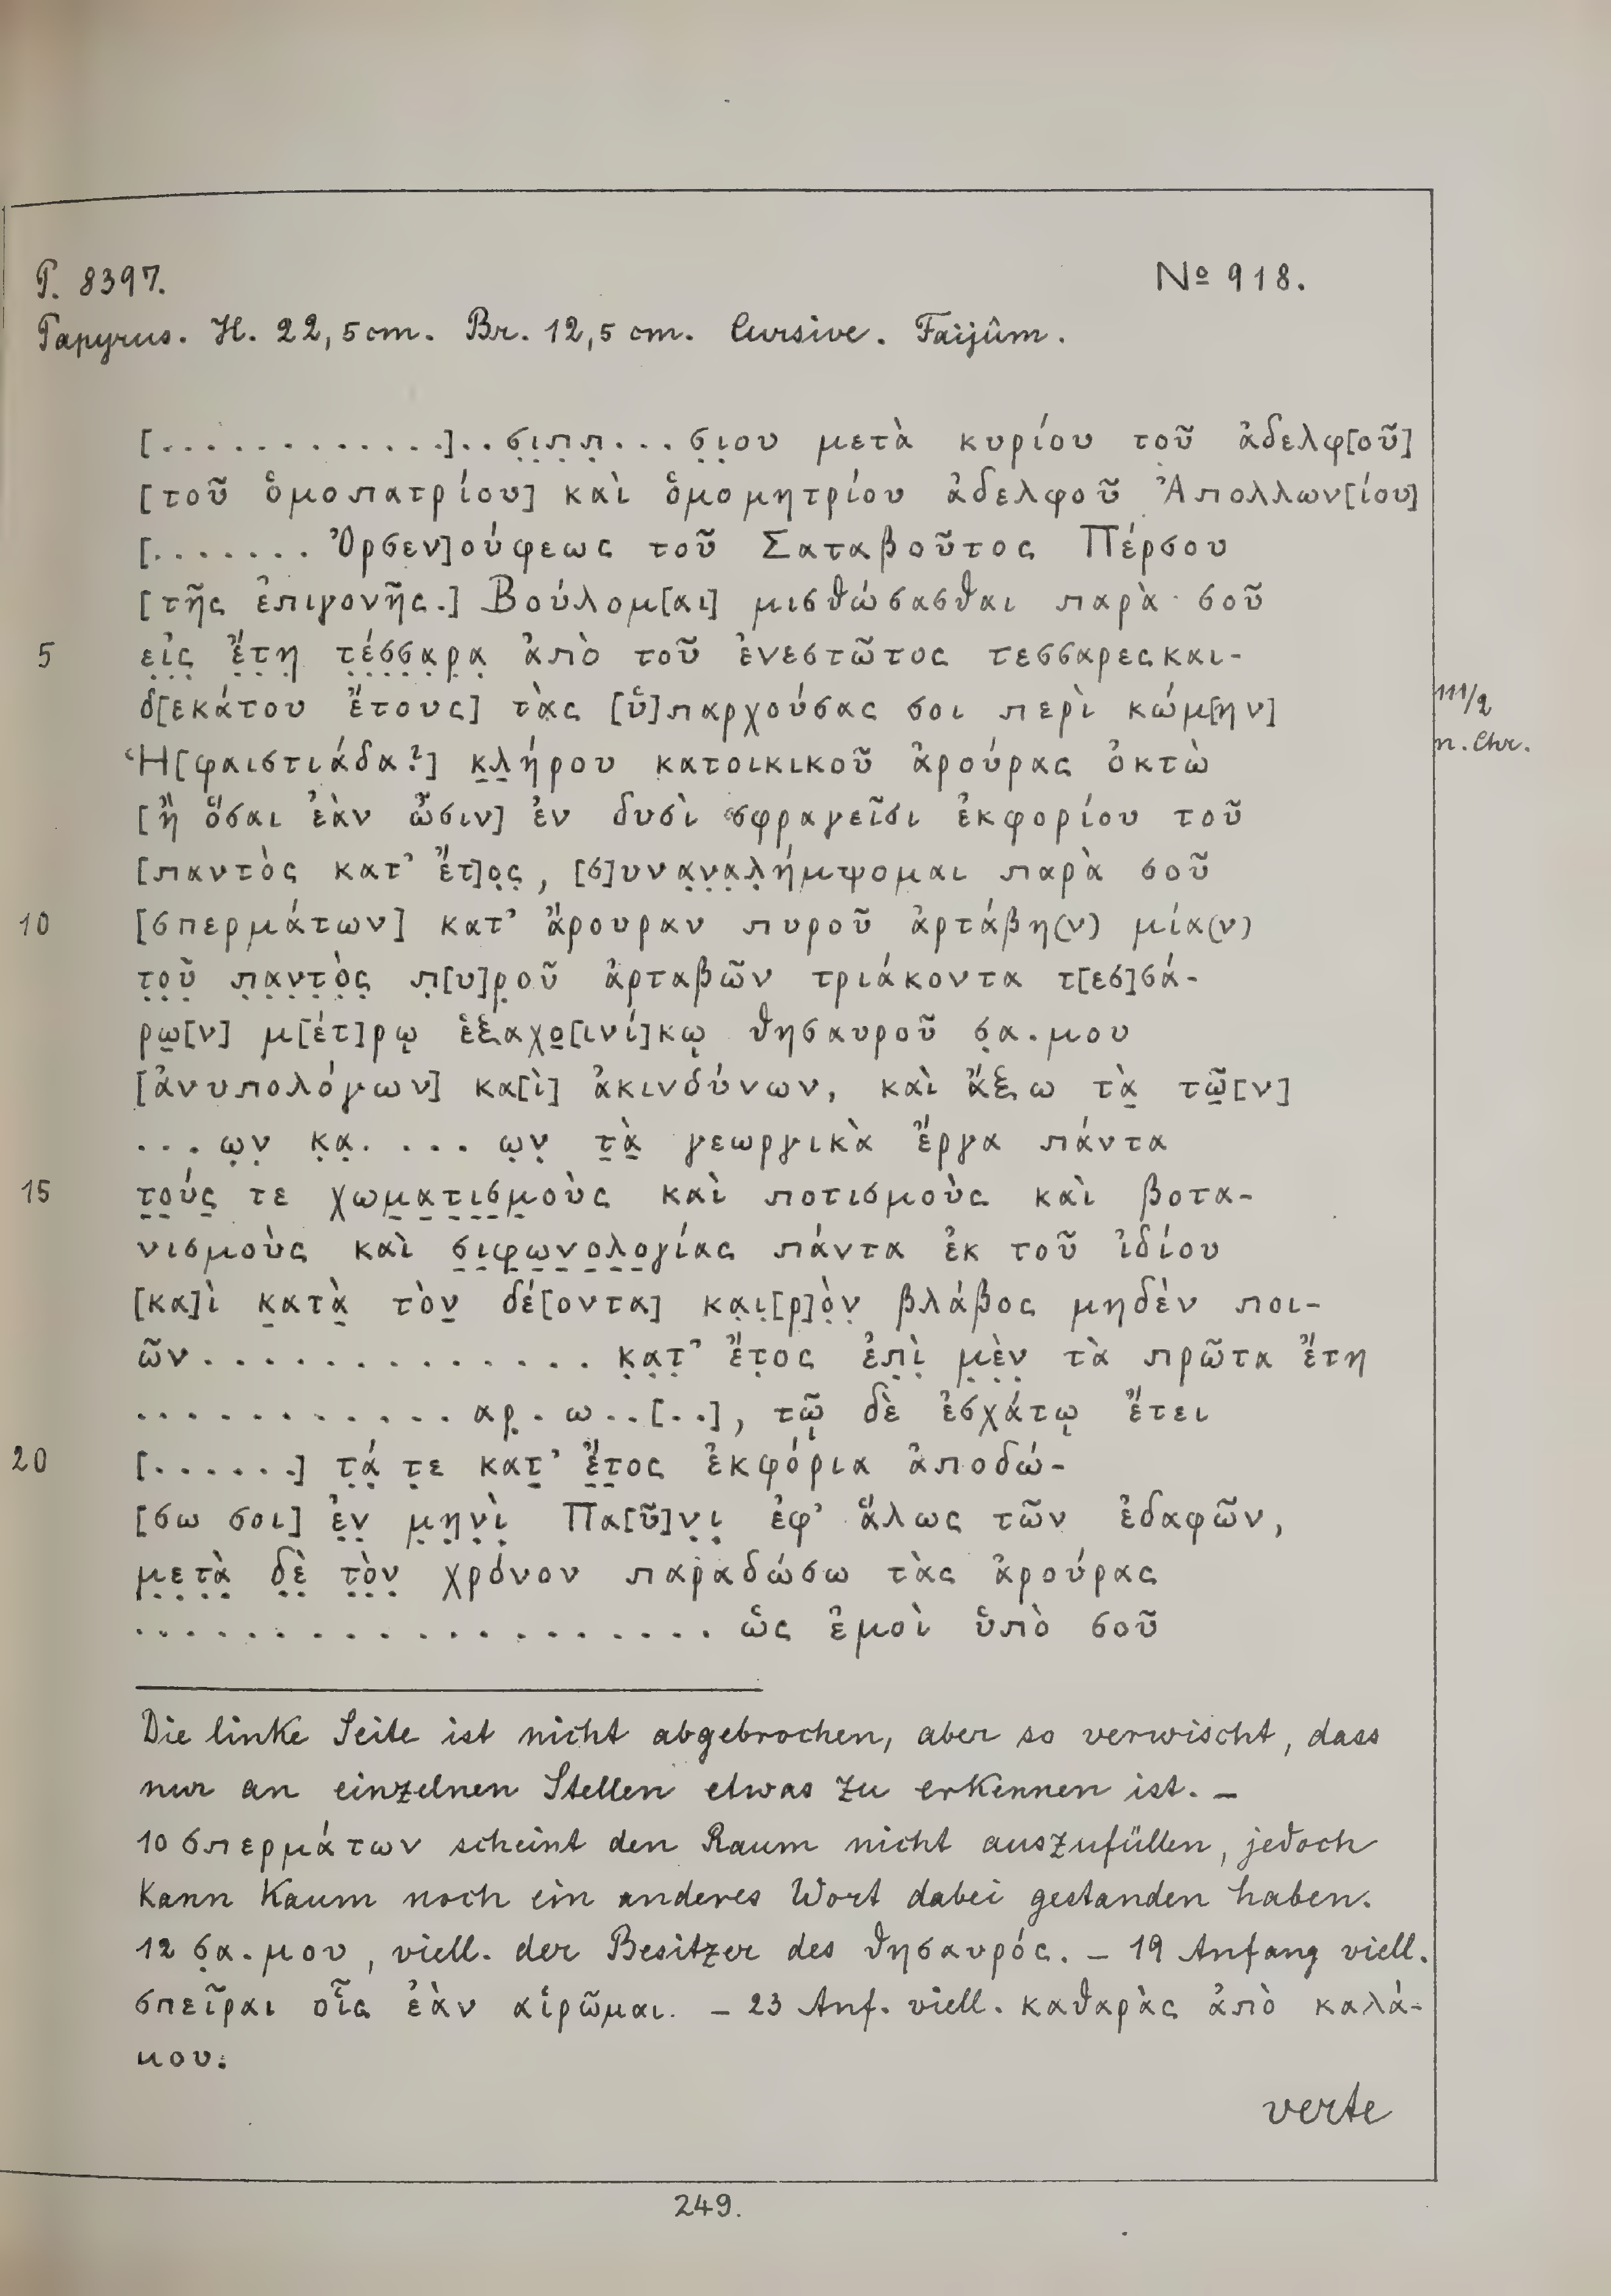 P. 8397.
No 918.
Papyrus. H. 22,5 cm. Br. 12,5 cm. Cursive. Faijûm.
[............]..σ̣ι̣π̣π̣...σ̣ι̣ου μετὰ κυρίου τοῦ ἀδελφ[οῦ]
[τοῦ ὁμοπατρίου] καὶ ὁμομητρίου ἀδελφοῦ Ἀπολλων[ίου]
[....... Ὀρσεν]ούφεως τοῦ Σαταβοῦτος Πέρσου
[τῆς ἐπιγονῆς.] Βούλομ[αι] μισθώσασθαι παρὰ σοῦ
5 ε̣ἰ̣ς̣ ἔ̣τ̣η̣ τ̣έ̣σ̣σ̣α̣ρ̣α̣ ἀπὸ τοῦ ἐνεστῶτος τεσσαρεςκαι-
δ[εκάτου ἔτους] τὰ̣ς [ὑ]παρχούσας σοι περὶ κώμ[ην]
111/2
Ἡ[φαιστιάδα?] κ̣λ̣ήρου κατοικικοῦ ἀρούρας ὀκτὼ
n. Chr.
[ἢ ὅσαι ἐὰν ὦσιν] ἐν δυσὶ σφραγεῖσι ἐκφορίου τοῦ
[παντὸς κατ’ ἔτ]ο̣ς̣, [σ]υνα̣ν̣α̣λ̣ήμψομαι παρὰ σοῦ
10 [σπερμάτων] κατ’ ἄρουραν πυροῦ ἀρτάβη(ν) μία(ν)
τ̣ο̣ῦ̣ π̣α̣ν̣τ̣ὸ̣ς̣ π̣[υ]ρ̣οῦ ἀρταβῶν τριάκοντα τ[εσ]σά-
ρω̣[ν] μ[έτ]ρῳ ἑξαχο̣[ινί]κῳ θησαυροῦ σ̣α.μου
[ἀνυπολόγων] κα[ὶ] ἀκινδύνων, καὶ ἄξω τὰ̣ τῶ̣[ν]
...ω̣ν̣ κ̣α̣.... ω̣ν̣ τ̣ὰ̣ γεωργικὰ ἔργα πάντα
15 τ̣ο̣ύ̣ς̣ τε χωμ̣α̣τ̣ι̣σ̣μ̣οὺς καὶ ποτισμοὺς καὶ βοτα-
νισμοὺς καὶ σ̣ι̣φ̣ω̣ν̣ο̣λ̣ο̣γίας πάντα ἐκ τοῦ ἰδίου
[κα]ὶ κ̣ατὰ̣ τὸν̣ δέ[οντα] κα̣ι̣[ρ]ὸ̣ν̣ βλάβος μηδὲν ποι-
ῶν.............. κ̣α̣τ̣’ ἔτ̣ος ἐπ̣ὶ̣ μ̣ὲ̣ν̣ τὰ πρῶτα ἔτη
............ αρ̣.ω..[..], τῷ δὲ ἐσχάτῳ ἔτει
20 [......] τ̣ά̣ τ̣ε κατ̣’ ἔ̣τ̣ος ἐκφόρια ἀποδώ-
[σω σοι] ἐ̣ν̣ μ̣η̣ν̣ὶ̣ Πα[ῦ]ν̣ι̣ ἐφ’ ἅλως τῶν ἐδαφῶν,
μ̣ε̣τ̣ὰ̣ δ̣ὲ̣ τ̣ὸ̣ν̣ χρόνον παραδώσω τὰς ἀρούρας
...................... ὡς ἐμοὶ ὑπὸ σοῦ
Die linke Seite ist nicht abgebrochen, aber so verwischt, dass
nur an einzelnen Stellen etwas zu erkennen ist. –
10 σπερμάτων scheint den Raum nicht auszufüllen, jedoch
kann kaum noch ein anderes Wort dabei gestanden haben.
12 σ̣α.μου, viell. der Besitzer des θησαυρός. – 19 Anfang viell.
σπεῖραι οἷς ἐὰν αἱρῶμαι. – 23 Anf. viell. καθαρὰς ἀπὸ καλά-
μου.
verte
249.